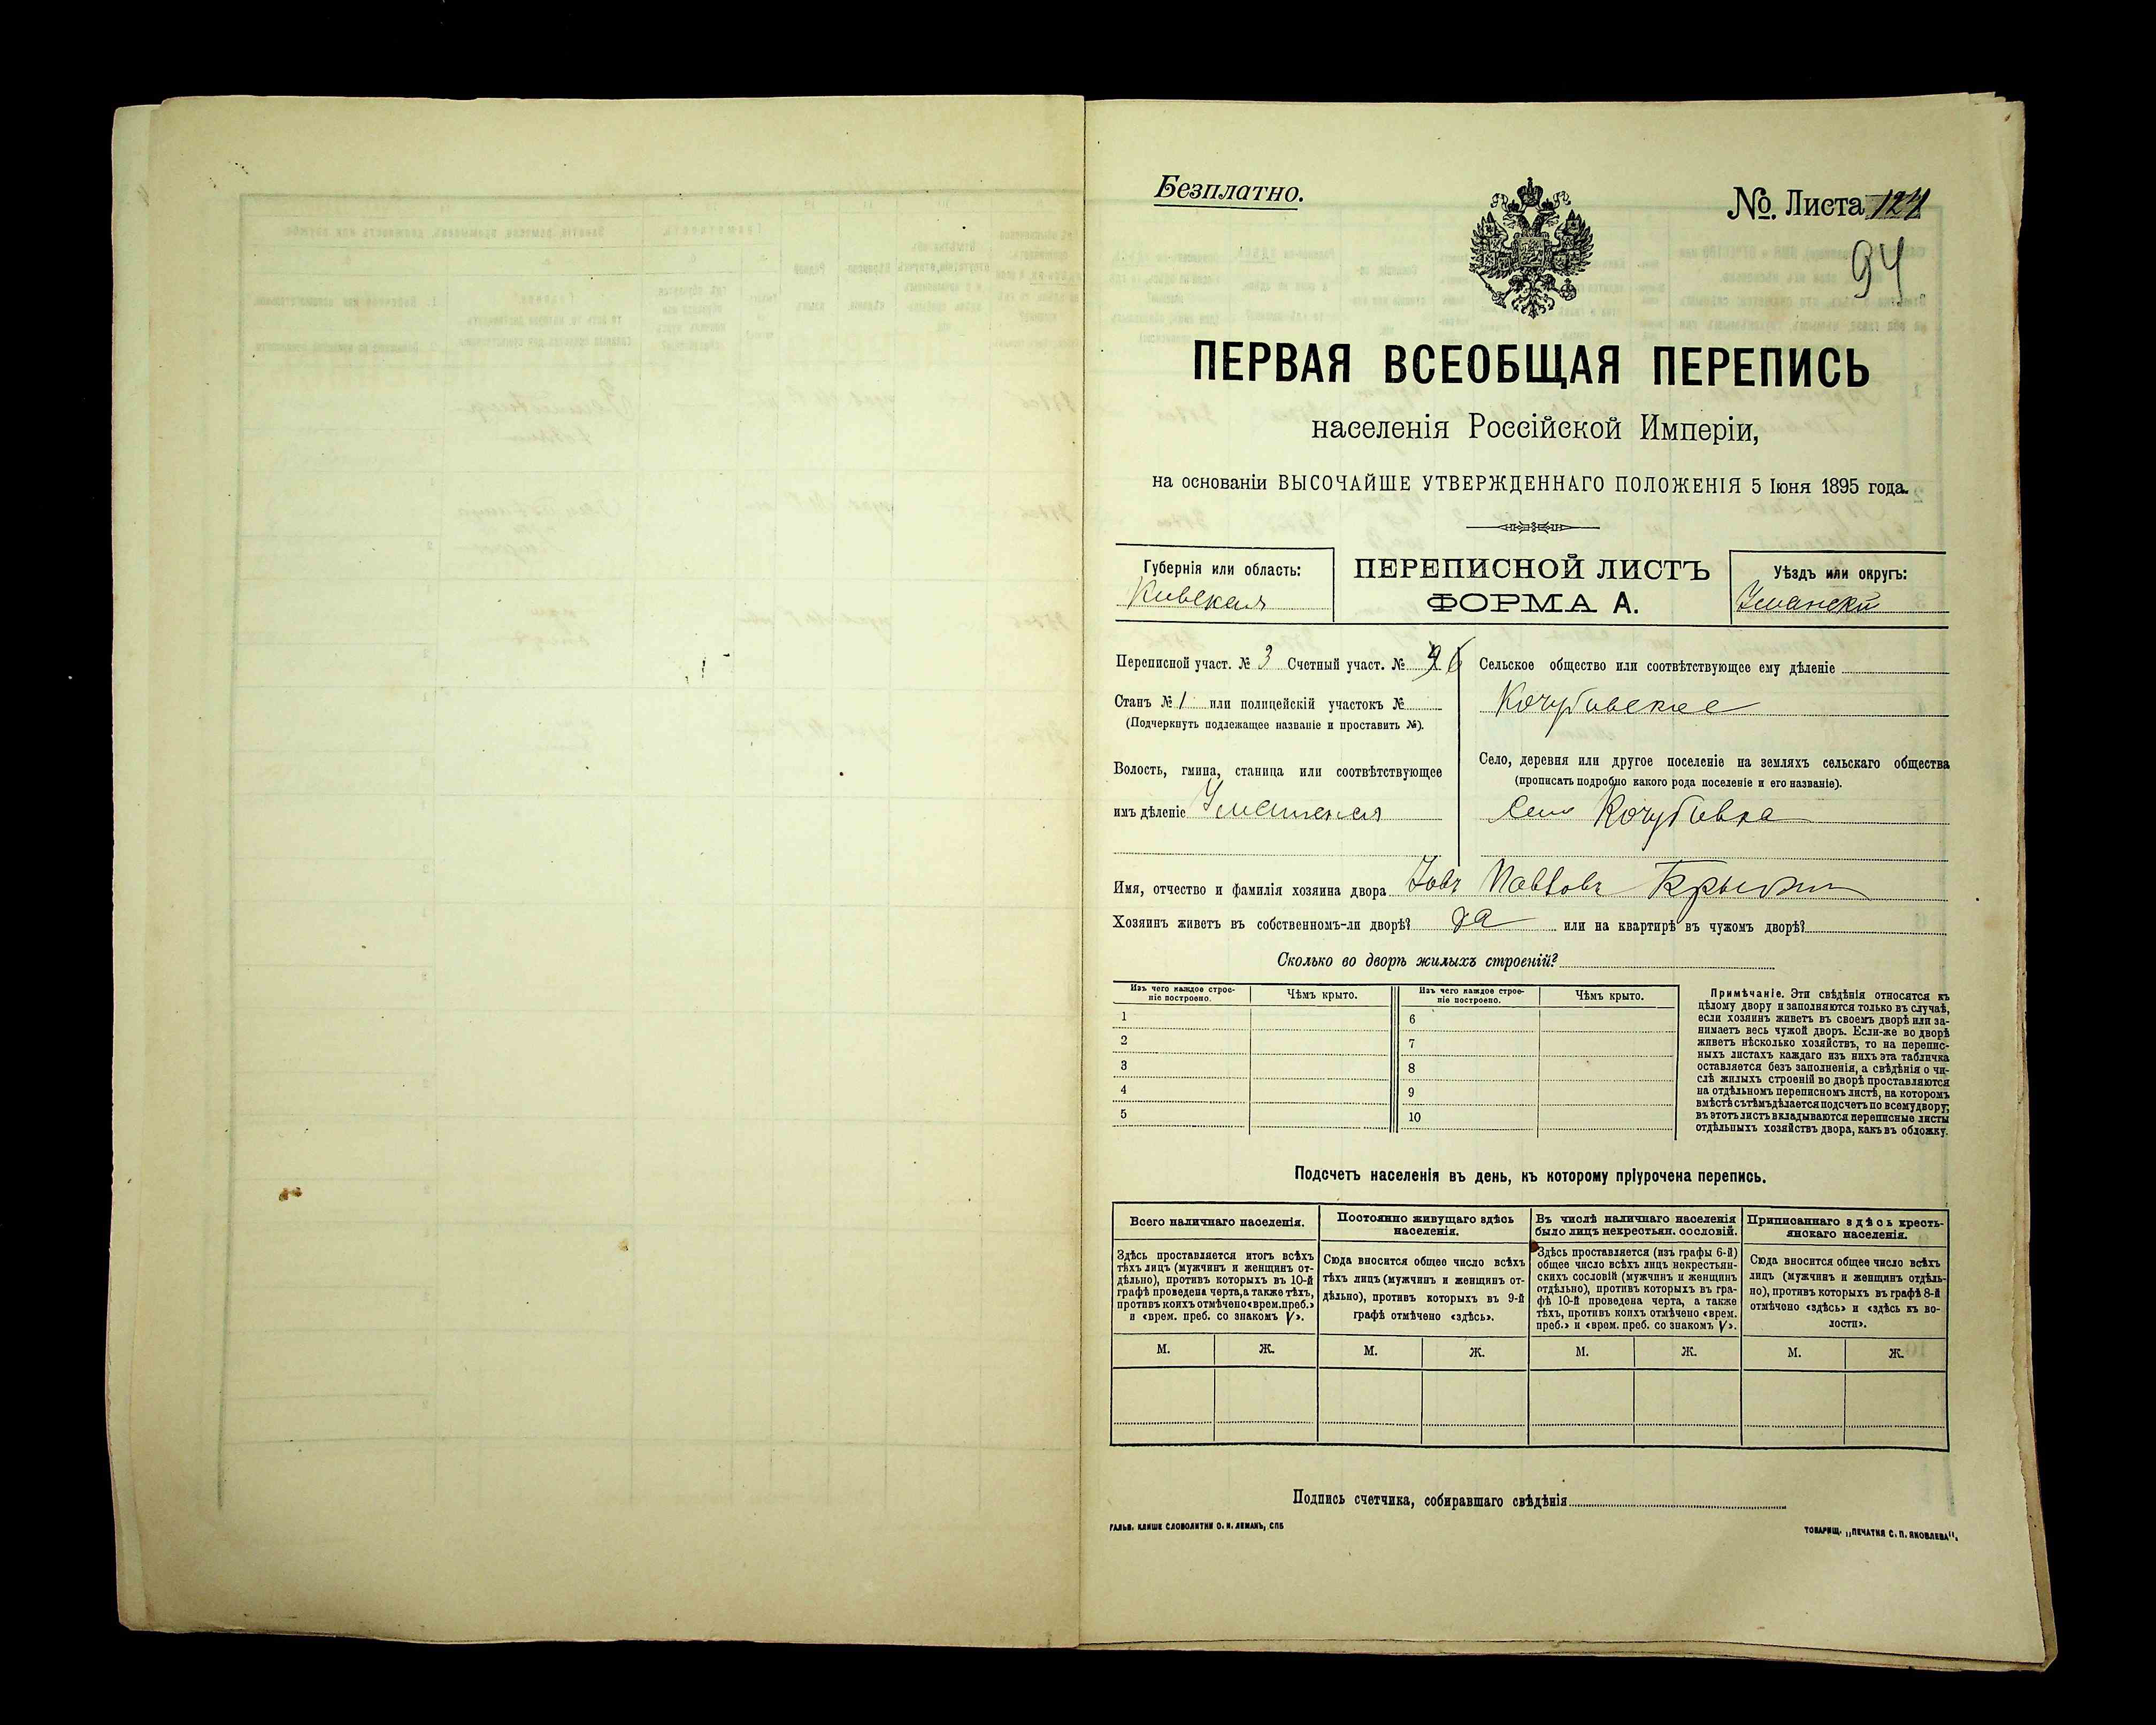 Безплатно.
№. Листа 124
94
ПЕРВАЯ ВСЕОБЩАЯ ПЕРЕПИСЬ
населенія Россійской Имперіи,
на основаніи ВЫСОЧАЙШЕ УТВЕРЖДЕННАГО ПОЛОЖЕНІЯ 5 Іюня 1895 года.
Губернія или область:
Киевская
ПЕРЕПИСНОЙ ЛИСТЪ
ФОРМА А.
Уѣздъ или округъ:
Умански
Переписной участ. № 3 Счетный участ. №
Станъ № 1 или полицейскій участокъ №
(Подчеркнуть подлежащее названіе и проставить №).
Волость, гмина, станица или соотвѣтствующее
имъ дѣленіе Уманская
Сельское общество или соотвѣтствующее ему дѣленіе
Кочубивское
Село, деревня или другое поселеніе на земляхъ сельскаго общества
(прописать подробно какого рода поселеніе и его названіе).
Село Кочубивка
Имя, отчество и фамилія хозяина двора Іовъ
Хозяинъ живетъ въ собственномъ-ли дворѣ? да или на квартирѣ въ чужомъ дворѣ?
Сколько во дворѣ жилыхъ строеній?
Изъ чего каждое строе-
ніе построено.
Чѣмъ крыто.
Изъ чего каждое строе-
ніе построено.
Чѣмъ крыто.
1
2
3
4
5
6
7
8
9
10
Примѣчаніе. Эти свѣдѣнія относятся къ
цѣлому двору и заполняются только въ случаѣ,
если хозяинъ живетъ въ своемъ дворѣ или за-
нимаетъ весь чужой дворъ. Если-же во дворѣ
живетъ нѣсколько хозяйствъ, то на перепис-
ныхъ листахъ каждаго изъ нихъ эта табличка
оставляется безъ заполненія, а свѣдѣнія о чи-
слѣ жилыхъ строеній во дворѣ проставляются
на отдѣльномъ переписномъ листѣ, на которомъ
вмѣстѣ съ тѣмъ дѣлается подсчетъ по всему двору;
въ этотъ листъ вкладываются переписные листы
отдѣльныхъ хозяйствъ двора, какъ въ обложку.
Подсчетъ населенія въ день, къ которому пріурочена перепись.
Всего наличнаго населенія.
Здѣсь проставляется итогъ всѣхъ
тѣхъ лицъ (мужчинъ и женщинъ от-
дѣльно), противъ которыхъ въ 10-й
графѣ проведена черта, а также тѣхъ,
противъ коихъ отмѣчено «врем. преб.»
и «врем. преб. со знакомъ V».
М. Ж.
Постоянно живущаго здѣсь
населенія.
Сюда вносится общее число всѣхъ
тѣхъ лицъ (мужчинъ и женщинъ от-
дѣльно), противъ которыхъ въ 9-й
графѣ отмѣчено «здѣсь».
М. Ж.
Въ числѣ наличнаго населенія
было лицъ некрестьян. сословій.
Здѣсь проставляется (изъ графы 6-й)
общее число всѣхъ лицъ некрестьян-
скихъ сословій (мужчинъ и женщинъ
отдѣльно), противъ которыхъ въ гра-
фѣ 10-й проведена черта, а также
тѣхъ, противъ коихъ отмѣчено «врем.
преб.» и «врем. преб. со знакомъ V».
М. Ж.
Приписаннаго здѣсь кресть-
янскаго населенія.
Сюда вносится общее число всѣхъ
лицъ (мужчинъ и женщинъ отдѣль-
но), противъ которыхъ въ графѣ 8-й
отмѣчено «здѣсь» и «здѣсь въ во-
лости».
М. Ж.
Подпись счетчика, собиравшаго свѣдѣнія
ГАЛЬВ. КЛИШЕ СЛОВОЛИТНИ О. И. ЛЕМАНЪ, СПБ
ТОВАРИЩ. „ПЕЧАТНЯ С. П. ЯКОВЛЕВА".